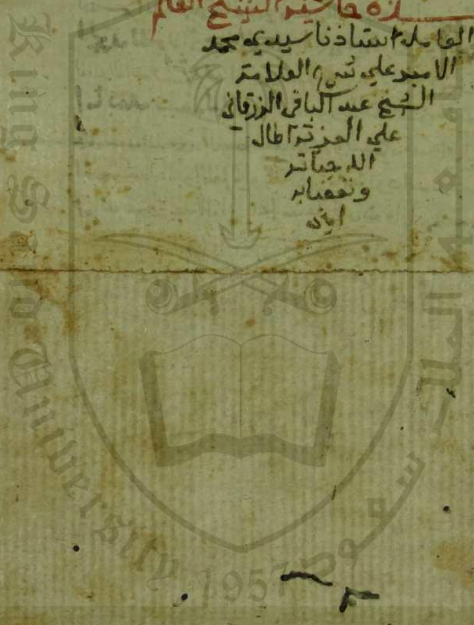 هذه حاشية الشيخ العالم
العامل استاذنا سيدي محمد
الامير على شرح العلامة
الشيخ عبد الباقي الزرقاني
على العزية اطال
الله حياته
ونفعنا به
امين
King Saud University
1957